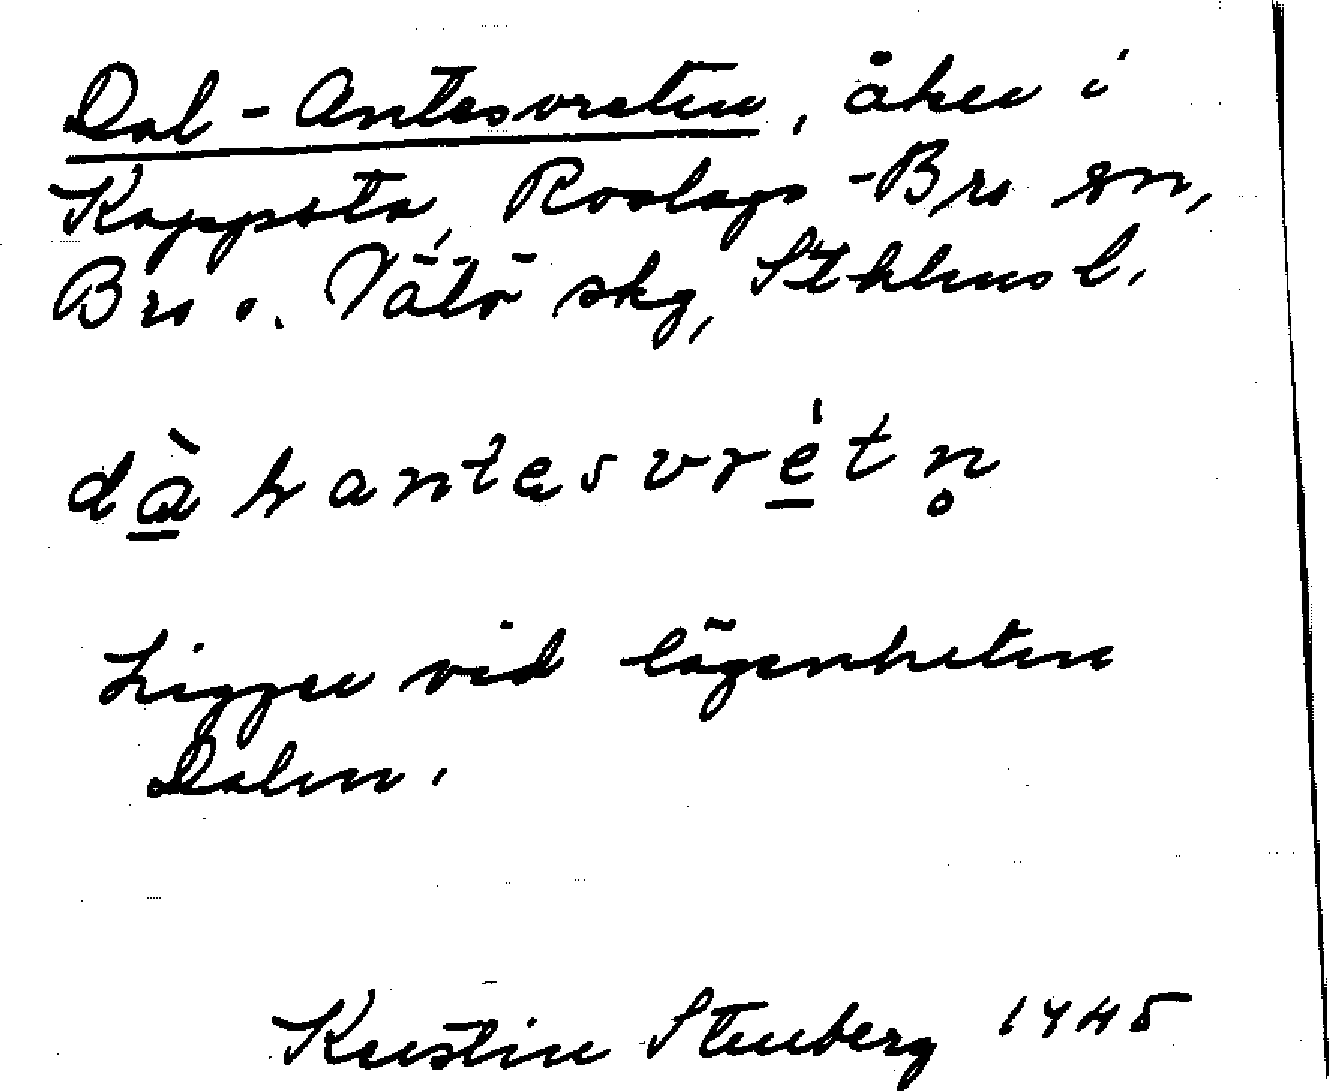 Dal-Antesvreten, åker i
Kappsta, Roslags-Bro sn,
Bro o. Vätö skg, Sthlms l.
Ligger vid lägenheten
Dalen.
Kerstin Stenberg 1945